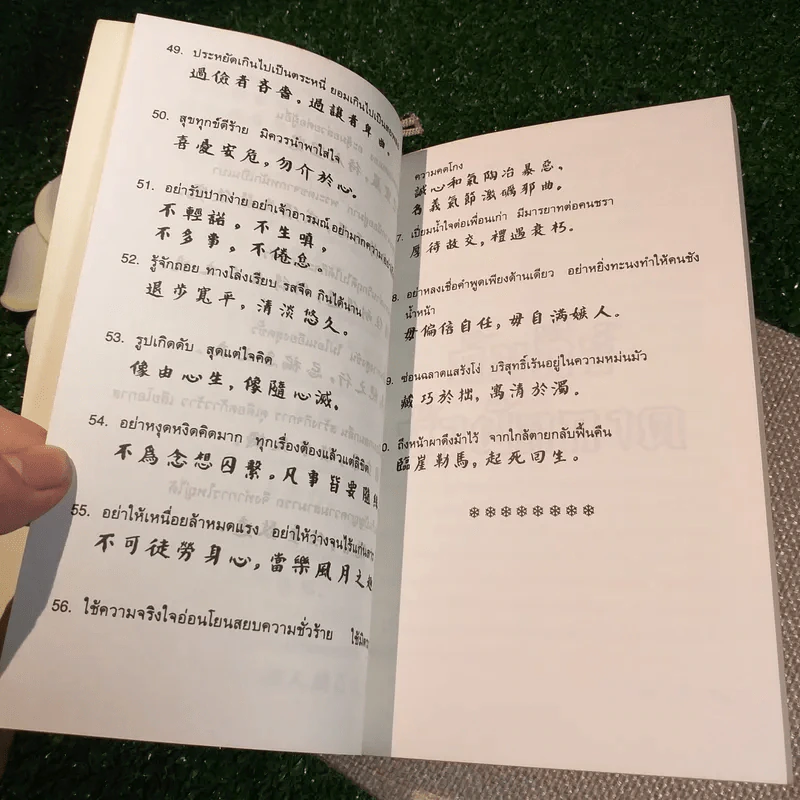 49. ประหยัดเกินไปเป็นตระหนี่ ยอมเกินไปเป็น
過儉者吝嗇，過讓者卑曲。
50. สุขทุกข์ดีร้าย มิควรนำพาใส่ใจ
喜憂安危，勿介於心。
51. อย่ารับปากง่าย อย่าเจ้าอารมณ์ อย่ามากความ
不輕諾，不生嗔，
不多事，不倦怠。
52. รู้จักถอย ทางโล่งเรียบ รสจืด กินได้นาน
退步寬平，清淡悠久。
53. รูปเกิดดับ สุดแต่ใจคิด
像由心生，像隨心滅。
54. อย่าหงุดหงิดคิดมาก ทุกเรื่องต้องแล้วแต่ลิขิต
不為念想囚繫，凡事皆要隨
55. อย่าให้เหนื่อยล้าหมดแรง อย่าให้ว่างจนไร้แก่นสาร
不可徒勞身心，當樂風月之
56. ใช้ความจริงใจอ่อนโยนสยบความชั่วร้าย
ความคดโกง
誠心和氣陶冶暴惡，
名義氣節激礪邪曲。
7. เปี่ยมน้ำใจต่อเพื่อนเก่า มีมารยาทต่อคนชรา
厚待故交，禮遇衰朽。
8. อย่าหลงเชื่อคำพูดเพียงด้านเดียว อย่าหยิ่งทะนงทำให้คนชัง
น้ำหน้า
毋偏信自任，毋自满嫉人。
9. ซ่อนฉลาดแสร้งโง่ บริสุทธิ์เร้นอยู่ในความหม่นมัว
藏巧於拙，寓清於濁。
0. ถึงหน้าผาดึงม้าไว้ จากใกล้ตายกลับฟื้นคืน
臨崖勒馬，起死回生。